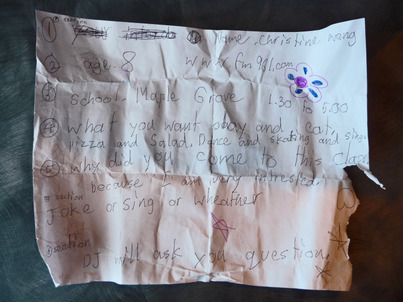 ① Name. Christine wang
② age. 8 www.fm991.com
③ School. Maple Grove 1.30 to 5.00
④ what you want play and eat,
pizza and Salad. Dance and skating and sing
⑤ why did you come to this class
because I am very intrested.
section
Joke or Sing or wheather
section
DJ will ask you question.